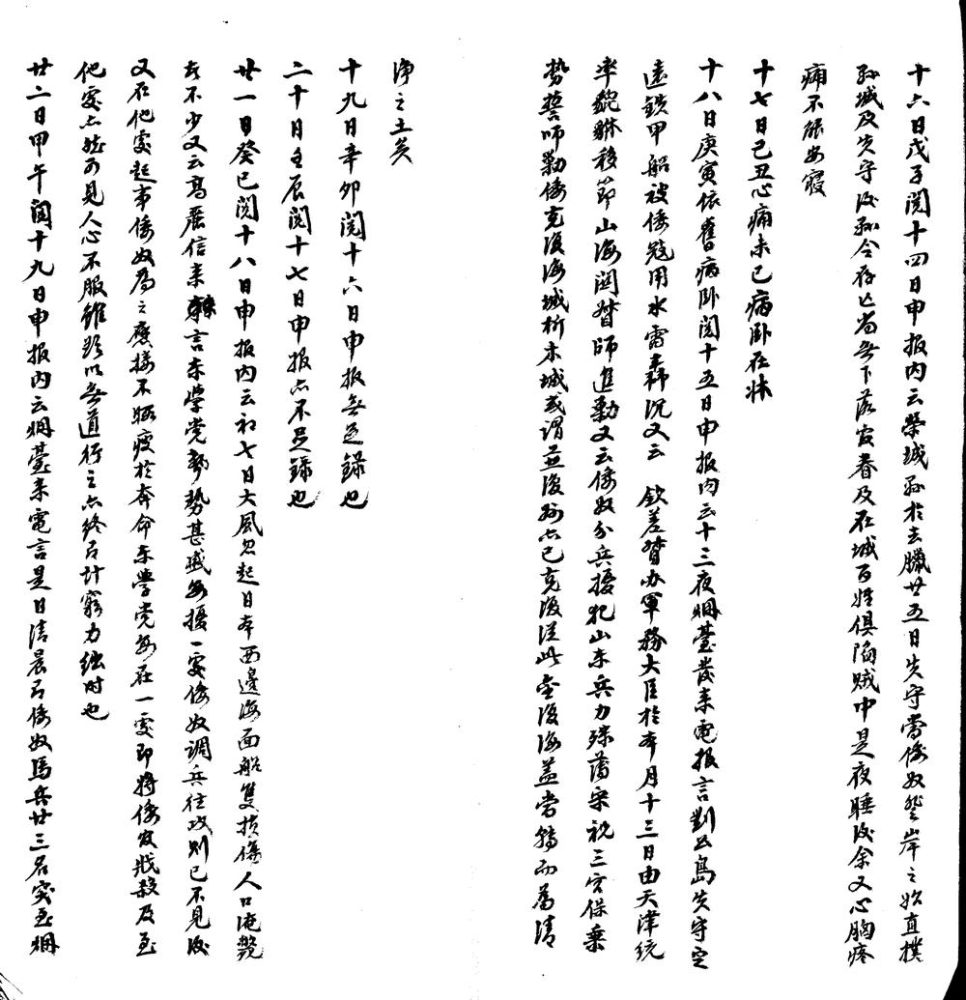 十六日戊子閱十四日申报内云榮城孫於去臘廿五日失守當倭奴登岸之始直撲
孫城及失守後孫令存亡尚無下落官眷及在城百姓俱陷賊中是夜睡後余又心胸疼
痛不能安寢
十七日己丑心痛未已病卧在牀
十八日庚寅依舊病卧閱十五日申报内云十三夜烟臺發来電报言劉公島失守定
遠鉄甲船被倭寇用水雷轟沉又云 欽差督办軍務大臣於本月十三日由天津統
率貔貅移節山海関督師進勦又云倭奴分兵擾犯山东兵力殊薄宋祝三宫保乗
勢誓師勦倭克復海城析木城或謂蓋復孫亦已克復從此金復海蓋當轉而為清
净之土矣
十九日辛卯閱十六日申报無足録也
二十日壬辰閱十七日申报亦不足録也
廿一日癸巳閱十八日申报内云初七日大風忽起日本西邊海面船隻損傷人口淹斃
者不少又云高麗信来言东學党勢甚盛每擾一處倭奴調兵往攻則已不見後
又在他處起事倭奴为之應接不暇疲於奔命东學党每在一處即将倭官戕殺及至
他處亦然可見人心不服雖欲以無道行之亦終有計窮力絀时也
廿二日甲午閱十九日申报内云烟臺来電言是日清晨有倭奴馬兵廿三名突至烟